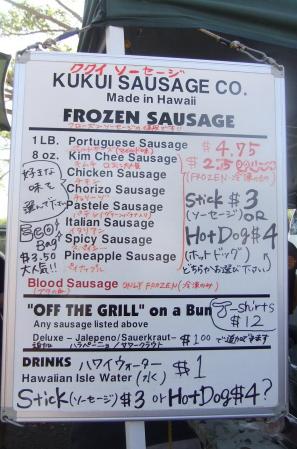 ククイ ソーセージ
KUKUI SAUSAGE CO.
Made in Hawaii
FROZEN SAUSAGE
1 LB. Portuguese Sausage $4.75
8 oz. Kim Chee Sausage
Chicken Sausage
チキン
(FROZEN
Chorizo Sausage
チョリソ
Pastele Sausage
Italian Sausage
イタリアン
Spicy Sausage
スパイシー
Pineapple Sausage
パイナップル
好きな
味を
選んで
ECO
Bag
$3.50
大人気!!
Stick $3
(ソーセージ) OR
HotDog $4
(ホットドッグ)
どちらかお選び下さい
Blood Sausage ONLY FROZEN
"OFF THE GRILL" on a Bun
Any sausage listed above
T-shirts
$12
Deluxe - Jalepeno/Sauerkraut- $1.00
追加 ハラペーニョ/サワークラウト
DRINKS ハワイウォーター $1
Hawaiian Isle Water (水)
Stick (ソーセージ) $3 or HotDog $4?